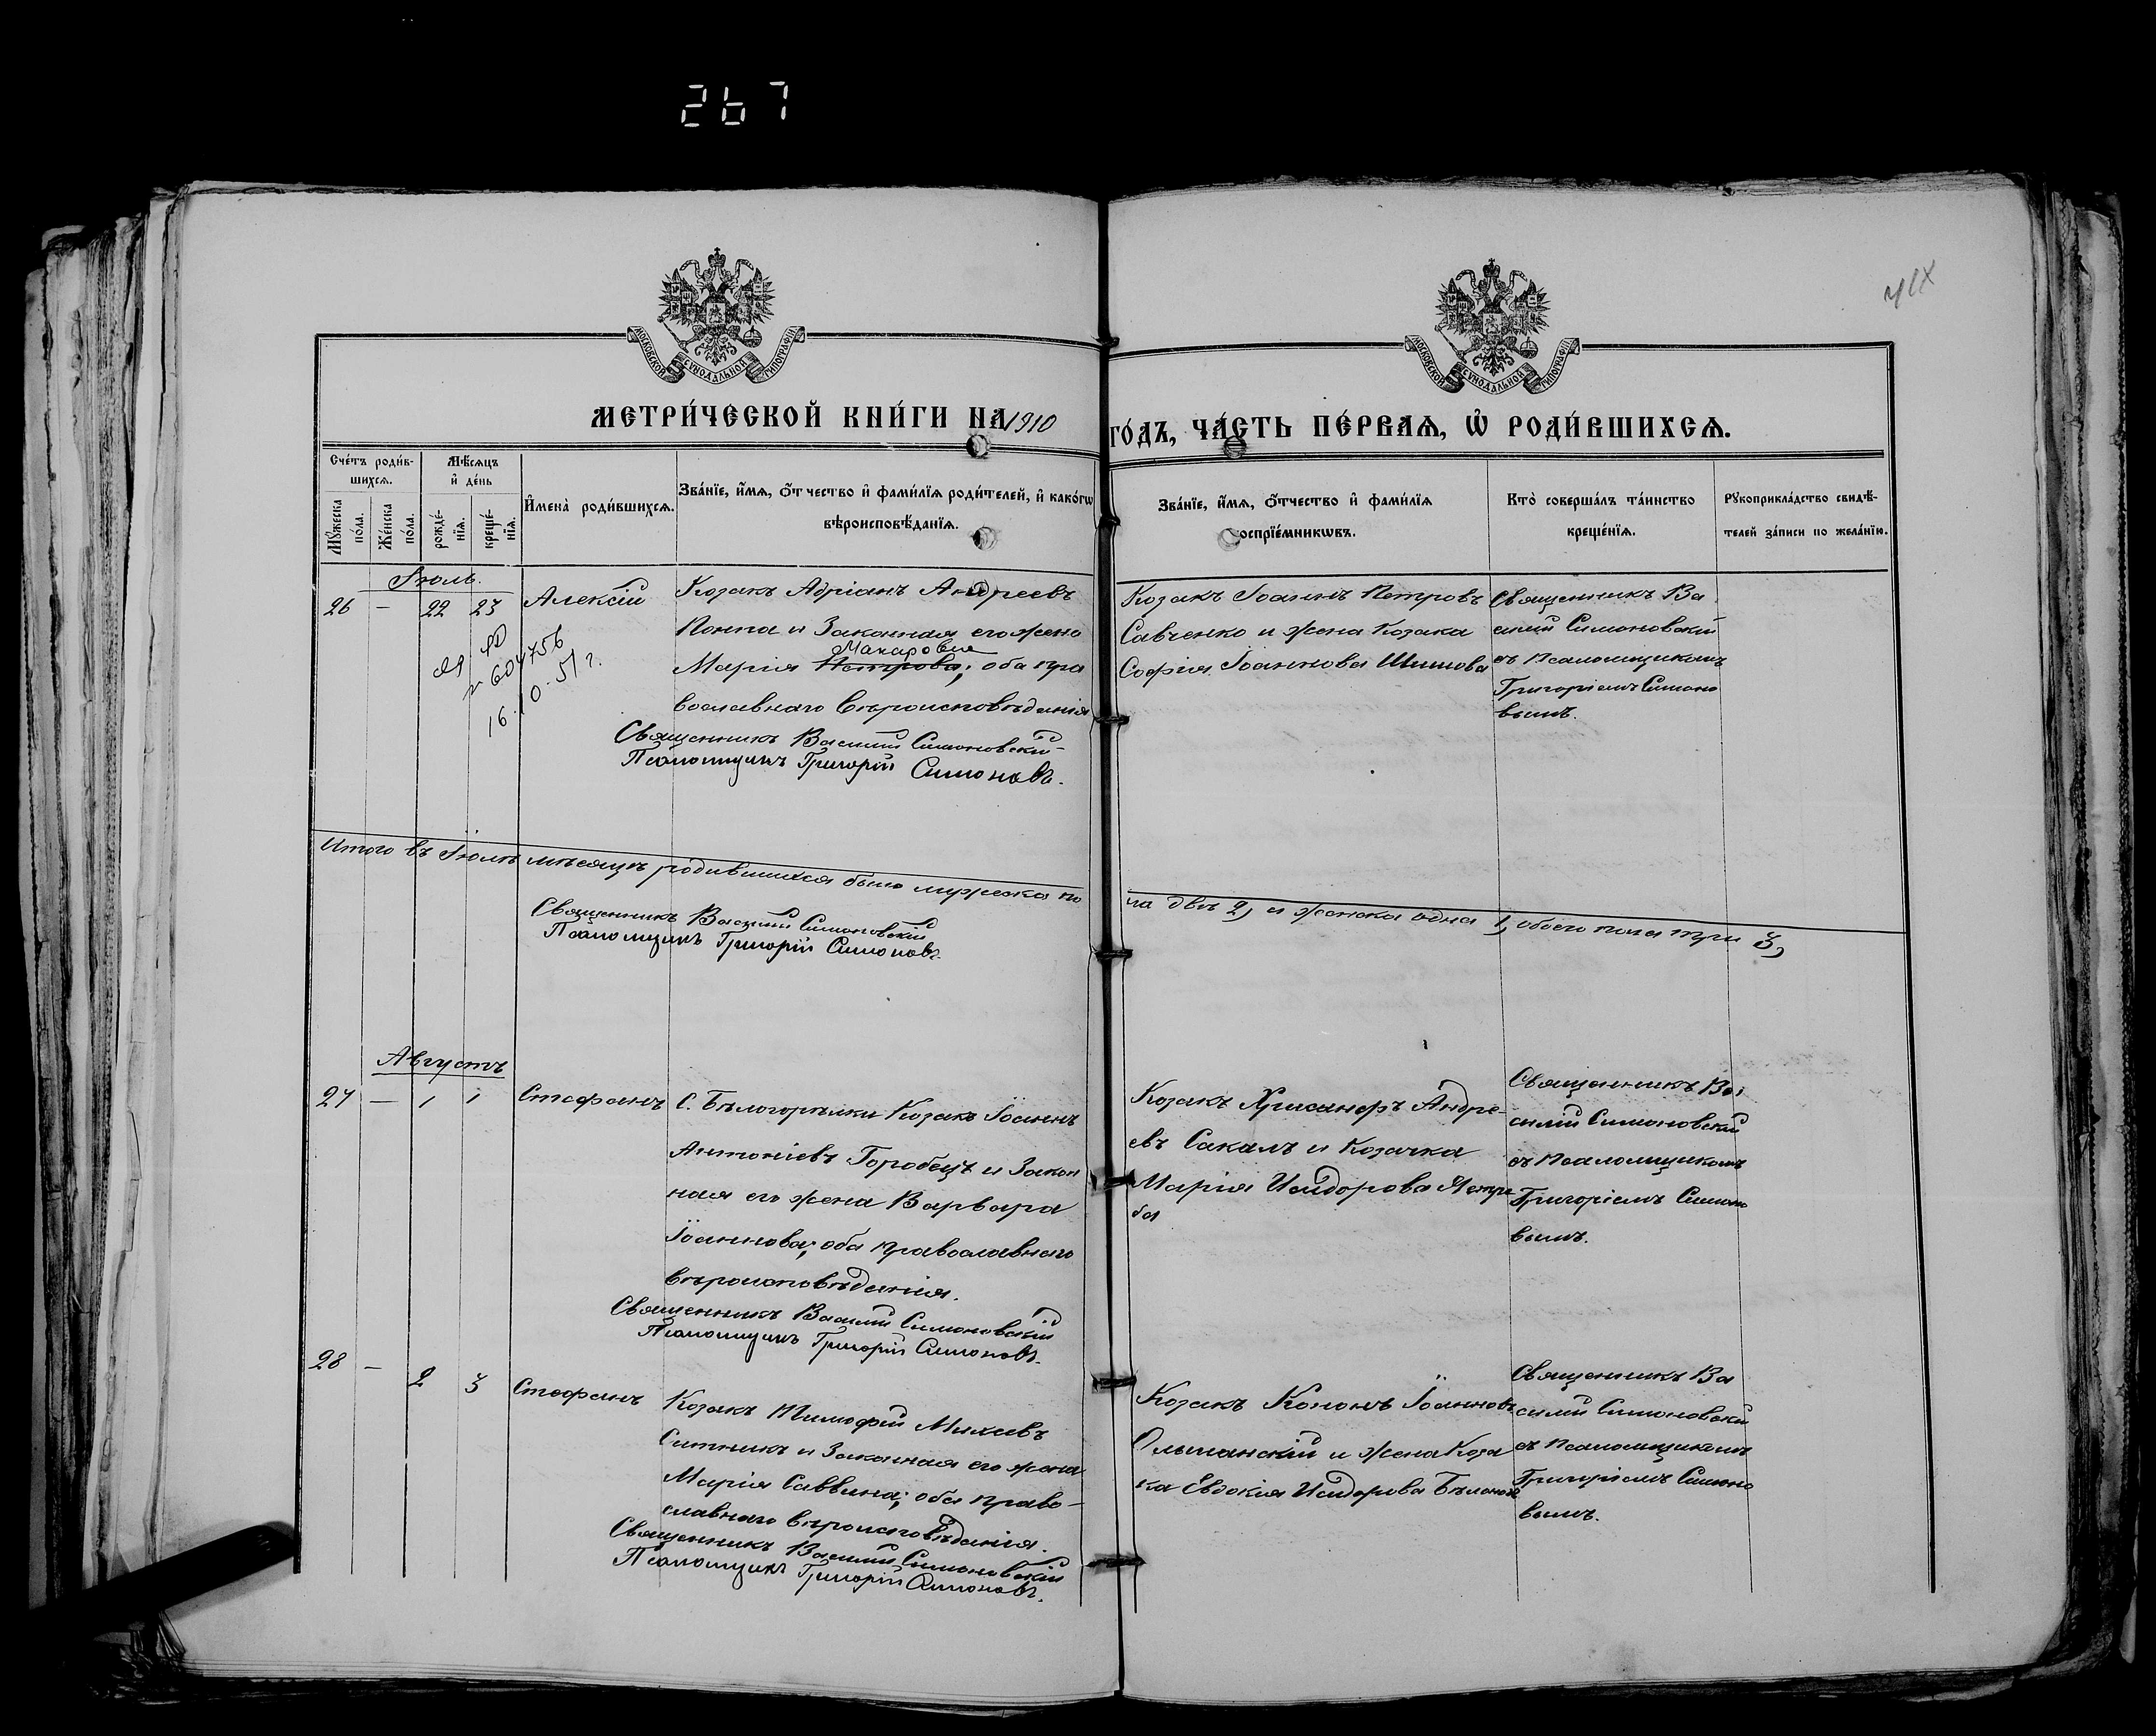 267
МОСКОВСКОЙ СѴНОДАЛЬНОЙ ТИПОГРАФІИ
МОСКОВСКОЙ СѴНОДАЛЬНОЙ ТИПОГРАФІИ
МЕТРИ́ЧЕСКОЙ КНИ́ГИ НА 1910
ГО́ДЪ, ЧА́СТЬ ПЕ́РВАѦ, Ѽ РОДИ́ВШИХСѦ.
Сче́тъ роди́в-
шихсѧ.
Мѣ́сѧцъ
и҆ де́нь
Мꙋ́жеска
по́ла.
Же́нска
по́ла.
рожде́-
нїѧ.
креще́-
нїѧ.
И҆мена̀ роди́вшихсѧ.
Зва́нїе, и҆́мѧ, ѻ҆́тчество и҆ фами́лїѧ роди́телей, и҆ како́гѡ
вѣроисповѣ́данїѧ.
Зва́нїе, и҆́мѧ, ѻ҆́тчество и҆ фами́лїѧ
воспрїе́мникѡвъ.
Кто̀ соверша́лъ та́инство
креще́нїѧ.
Рꙋкоприкла́дство свидѣ́-
телей за́писи по жела́нїю.
Іюль.
26 — 22 23 Алексій
Козакъ Адріанъ Андреевъ
Понпа и Законная его жена
Макаровна
Марія Петрова; оба пра
вославнаго вѣроисповѣданія
№ 604756
16.10.51 г.
Священникъ Василій Симоновскій
Псаломщикъ Григорій Симоновъ.
Козакъ Іоаннъ Петровъ
Савченко и жена Козака
Софія Іоаннова Шинова
Священникъ Ва
силій Симоновскій
съ Псаломщикомъ
Григоріемъ Симоно
вымъ.
Итого въ Іюлѣ мѣсяцѣ родившихся было мужеска по
ла двѣ 2, и женска одна 1, обоего пола три 3,
Священникъ Василій Симоновскій
Псаломщикъ Григорій Симоновъ.
Августъ
27 — 1 1 Стефанъ
С. Бѣлогорѣлки Козакъ Іоаннъ
Антоніевъ Горобецъ и Закон
ная его жена Варвара
Іоаннова; оба православнаго
вѣроисповѣданія.
Священникъ Василій Симоновскій
Псаломщикъ Григорій Симоновъ.
Козакъ Хрисанфъ Андре-
евъ Сакалъ и Козачка
Марія Исидорова Ястре
ба
Священникъ Ва
силій Симоновскій
съ Псаломщикомъ
Григоріемъ Симоно
вымъ.
28 — 2 3 Стефанъ
Козакъ Тимофій Михеевъ
Ситникъ и Законная его жена
Марія Саввина; оба право-
славнаго вѣроисповѣданія.
Священникъ Василій Симоновскій
Псаломщикъ Григорій Симоновъ.
Козакъ Кононъ Іоанновъ
Ольшанскій и жена Коза
ка Евдокія Исидорова
Священникъ Ва
силій Симоновскій
съ Псаломщикомъ
Григоріемъ Симоно
вымъ.